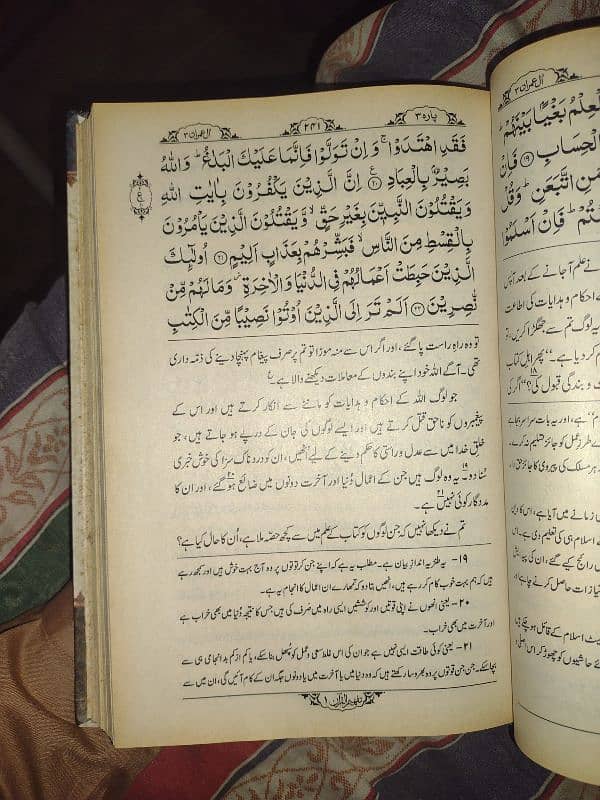 آل عمران ۳
۲۴۱
پارہ ۳
فَقَدِ اهْتَدَوْا ۚ وَاِنْ تَوَلَّوْا فَاِنَّمَا عَلَيْكَ الْبَلٰغُ ؕ وَاللّٰهُ
بَصِيْرٌۢ بِالْعِبَادِ ﴿۲۰﴾ اِنَّ الَّذِيْنَ يَكْفُرُوْنَ بِاٰيٰتِ اللّٰهِ
وَيَقْتُلُوْنَ النَّبِيّٖنَ بِغَيْرِ حَقٍّ ۙ وَّيَقْتُلُوْنَ الَّذِيْنَ يَاْمُرُوْنَ
بِالْقِسْطِ مِنَ النَّاسِ ۙ فَبَشِّرْهُمْ بِعَذَابٍ اَلِيْمٍ ﴿۲۱﴾ اُولٰٓئِكَ
الَّذِيْنَ حَبِطَتْ اَعْمَالُهُمْ فِى الدُّنْيَا وَالْاٰخِرَةِ ؗ وَمَا لَهُمْ مِّنْ
نّٰصِرِيْنَ ﴿۲۲﴾ اَلَمْ تَرَ اِلَى الَّذِيْنَ اُوْتُوْا نَصِيْبًا مِّنَ الْكِتٰبِ
تو وہ راہِ راست پا گئے، اور اگر اس سے منہ موڑا تو تم پر صرف پیغام پہنچا دینے کی ذمّہ داری
تھی۔ آگے اللہ خود اپنے بندوں کے معاملات دیکھنے والا ہے۔ ع
جو لوگ اللہ کے احکام و ہدایات کو ماننے سے انکار کرتے ہیں اور اس کے
پیغمبروں کو ناحق قتل کرتے ہیں اور ایسے لوگوں کی جان کے درپے ہو جاتے ہیں، جو
خلقِ خدا میں سے عدل و راستی کا حکم دینے کے لیے اُٹھیں، ان کو دردناک سزا کی خوش خبری
سُنا دو۔۱۹ یہ وہ لوگ ہیں جن کے اعمال دُنیا اور آخرت دونوں میں ضائع ہو گئے،۲۰ اور ان کا
مددگار کوئی نہیں۲۱ ہے۔
تم نے دیکھا نہیں کہ جن لوگوں کو کتاب کے علم میں سے کچھ حصّہ ملا ہے، اُن کا حال کیا ہے؟
۱۹ – یہ طنزیہ اندازِ بیان ہے۔ مطلب یہ ہے کہ اپنے جن کرتوتوں پر وہ آج بہت خوش ہیں اور سمجھ رہے
ہیں کہ ہم بہت خوب کام کر رہے ہیں، انھیں بتا دو کہ تمھارے ان اعمال کا انجام یہ ہے۔
۲۰ – یعنی انھوں نے اپنی قوتیں اور کوششیں ایسی راہ میں صرف کی ہیں جس کا نتیجہ دُنیا میں بھی خراب ہے
اور آخرت میں بھی خراب۔
۲۱ – یعنی کوئی طاقت ایسی نہیں ہے جو ان کی اس غلط سعی و عمل کو پھل بنا سکے، یا کم از کم بد انجامی ہی سے
بچا سکے۔ جن جن قوتوں پر وہ بھروسا رکھتے ہیں کہ وہ دنیا میں یا آخرت میں یا دونوں جگہ ان کے کام آئیں گی، ان میں سے
تفہیم القرآن ۱
آل عمران ۳
الْعِلْمُ بَغْيًۢا بَيْنَهُمْ ؕ
الْحِسَابِ ﴿۱۹﴾ فَاِنْ
وَمَنِ اتَّبَعَنِ ؕ وَقُلْ
فَاِنْ اَسْلَمُوْا